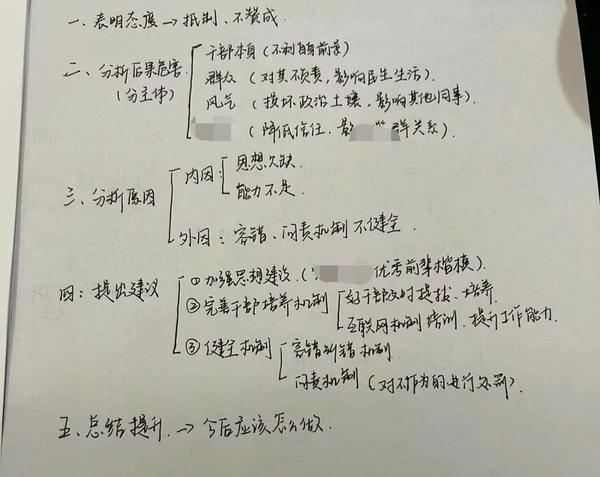 一、表明态度→抵制、不赞成.
二、分析后果危害(分主体)
干部本身(不利自身前景)
群众(对其不负责,影响民生生活).
风气(损坏政治土壤,影响其他同事).
(降低信任、影 群关系).
三、分析原因
内因:
思想欠缺.
能力不足.
外因:容错、问责机制不健全.
四:提出建议
①加强思想建设.( 优秀前辈楷模).
②完善干部培养机制
好干部及时提拔、培养
互联网机制培训、提升工作能力.
③健全机制
容错纠错机制.
问责机制(对不作为的进行处罚).
五、总结提升.→今后应该怎么做.